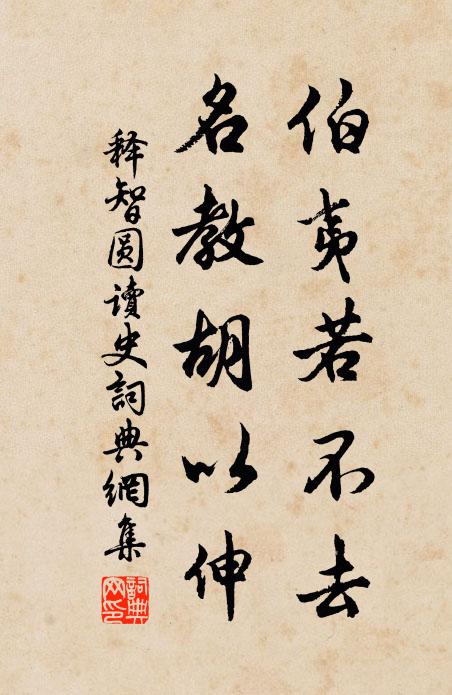 伯夷若不去
名教胡以伸
释智圆读史詞典網集